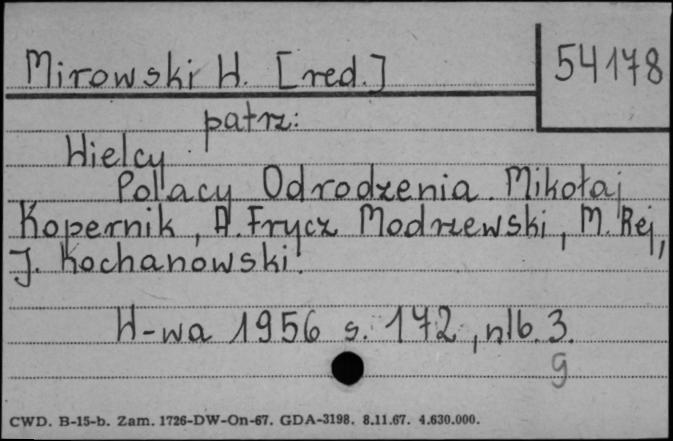 Mirowski W. [red.]
54178
patrz:
Wielcy
Polacy Odrodzenia. Mikołaj
Kopernik, A. Frycz Modrzewski, M. Rej,
J. Kochanowski.
W-wa 1956 s. 172, nlb. 3.
g
CWD. B-15-b. Zam. 1726-DW-On-67. GDA-3198. 8.11.67. 4.630.000.